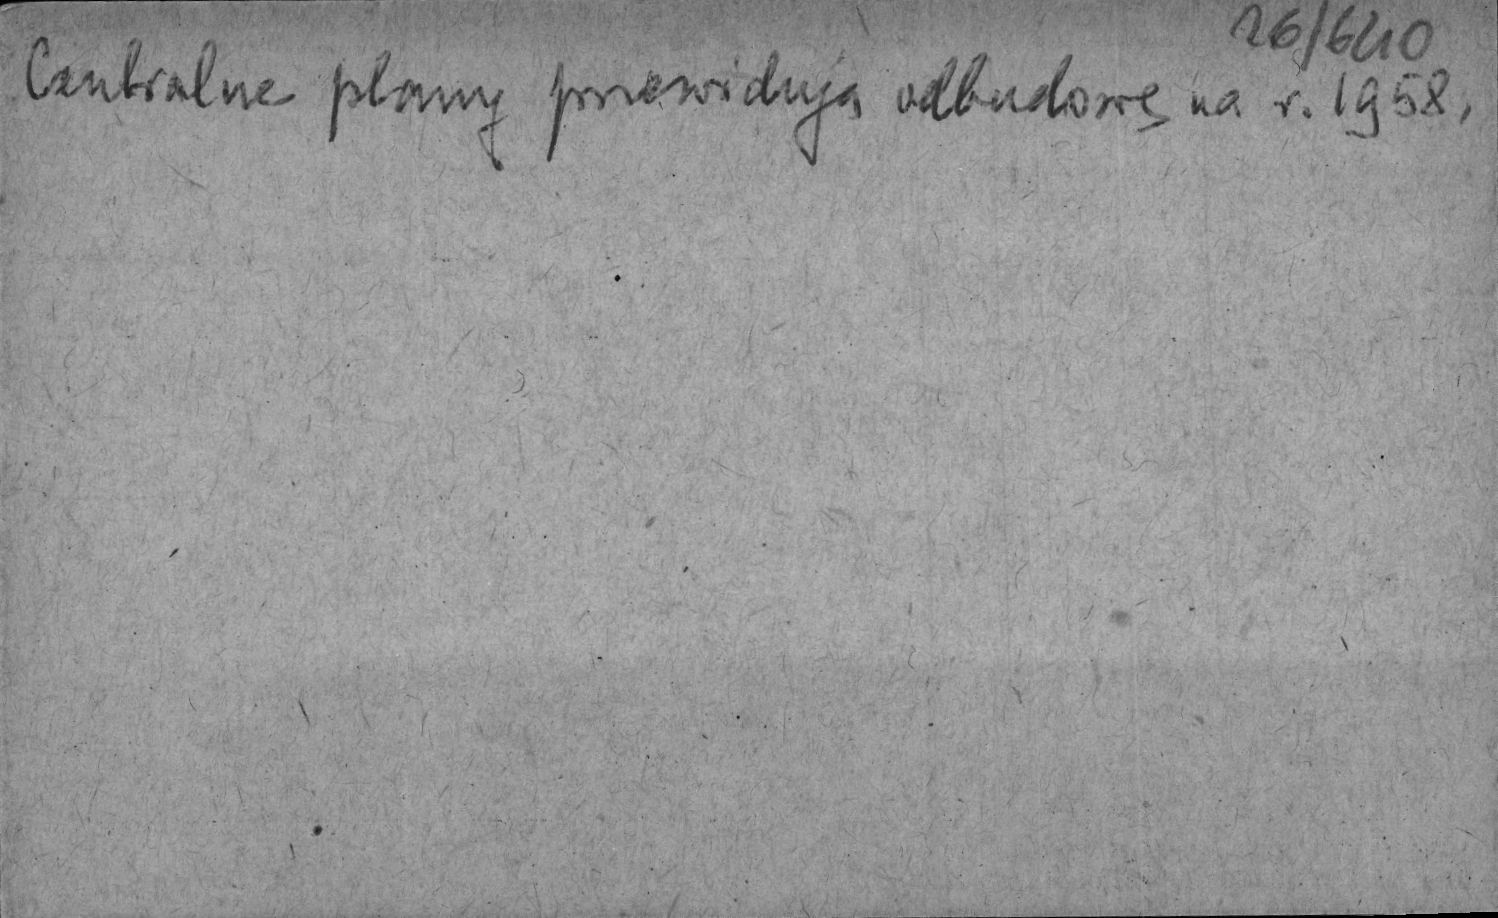 26/640
Centralne plany przewidują odbudowę na r. 1958,